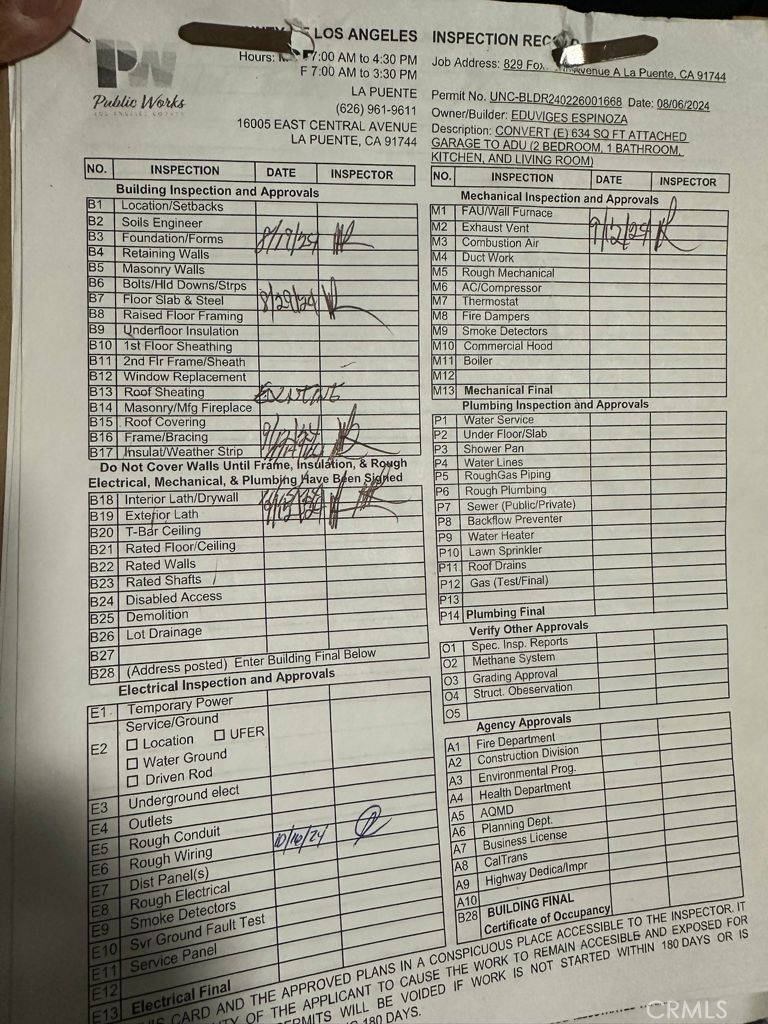 LOS ANGELES
Hours: 7:00 AM to 4:30 PM
F 7:00 AM to 3:30 PM
LA PUENTE
(626) 961-9611
16005 EAST CENTRAL AVENUE
LA PUENTE, CA 91744
PW
Public Works
LOS ANGELES COUNTY
INSPECTION
Job Address: 829 Avenue A La Puente, CA 91744
Permit No. UNC-BLDR240226001668 Date: 08/06/2024
Owner/Builder: EDUVIGES ESPINOZA
Description: CONVERT (E) 634 SQ FT ATTACHED
GARAGE TO ADU (2 BEDROOM, 1 BATHROOM,
KITCHEN, AND LIVING ROOM)
NO. INSPECTION DATE INSPECTOR
Building Inspection and Approvals
B1 Location/Setbacks
B2 Soils Engineer
B3 Foundation/Forms 8/19/24
B4 Retaining Walls
B5 Masonry Walls
B6 Bolts/Hld Downs/Strps
B7 Floor Slab & Steel 8/29/24
B8 Raised Floor Framing
B9 Underfloor Insulation
B10 1st Floor Sheathing
B11 2nd Flr Frame/Sheath
B12 Window Replacement
B13 Roof Sheating
B14 Masonry/Mfg Fireplace
B15 Roof Covering
B16 Frame/Bracing 9/12/24
B17 Insulat/Weather Strip
Do Not Cover Walls Until Frame, Insulation, & Rough
Electrical, Mechanical, & Plumbing Have Been Signed
B18 Interior Lath/Drywall
B19 Exterior Lath
B20 T-Bar Ceiling
B21 Rated Floor/Ceiling
B22 Rated Walls
B23 Rated Shafts
B24 Disabled Access
B25 Demolition
B26 Lot Drainage
B27
B28 (Address posted) Enter Building Final Below
Electrical Inspection and Approvals
E1 Temporary Power
E2 Service/Ground
Location UFER
Water Ground
Driven Rod
E3 Underground elect
E4 Outlets
E5 Rough Conduit
E6 Rough Wiring 10/16/24
E7 Dist Panel(s)
E8 Rough Electrical
E9 Smoke Detectors
E10 Svr Ground Fault Test
E11 Service Panel
E12
E13 Electrical Final
NO. INSPECTION DATE INSPECTOR
Mechanical Inspection and Approvals
M1 FAU/Wall Furnace
M2 Exhaust Vent 9/12/24
M3 Combustion Air
M4 Duct Work
M5 Rough Mechanical
M6 AC/Compressor
M7 Thermostat
M8 Fire Dampers
M9 Smoke Detectors
M10 Commercial Hood
M11 Boiler
M12
M13 Mechanical Final
Plumbing Inspection and Approvals
P1 Water Service
P2 Under Floor/Slab
P3 Shower Pan
P4 Water Lines
P5 RoughGas Piping
P6 Rough Plumbing
P7 Sewer (Public/Private)
P8 Backflow Preventer
P9 Water Heater
P10 Lawn Sprinkler
P11 Roof Drains
P12 Gas (Test/Final)
P13
P14 Plumbing Final
Verify Other Approvals
O1 Spec. Insp. Reports
O2 Methane System
O3 Grading Approval
O4 Struct. Obeservation
O5
Agency Approvals
A1 Fire Department
A2 Construction Division
A3 Environmental Prog.
A4 Health Department
A5 AQMD
A6 Planning Dept.
A7 Business License
A8 CalTrans
A9 Highway Dedica/Impr
A10
B28 BUILDING FINAL
Certificate of Occupancy
CARD AND THE APPROVED PLANS IN A CONSPICUOUS PLACE ACCESSIBLE TO THE INSPECTOR. IT
OF THE APPLICANT TO CAUSE THE WORK TO REMAIN ACCESIBLE AND EXPOSED FOR
PERMITS WILL BE VOIDED IF WORK IS NOT STARTED WITHIN 180 DAYS OR IS
180 DAYS.
CRMLS